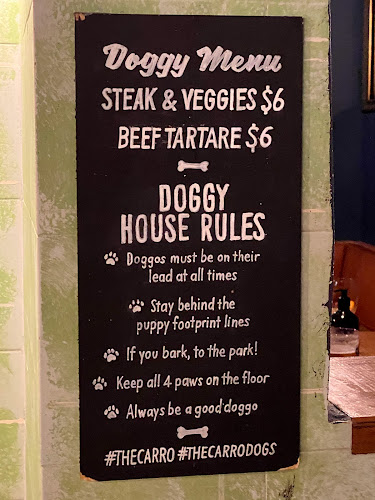 Doggy Menu
STEAK & VEGGIES $6
BEEF TARTARE $6
DOGGY
HOUSE RULES
Doggos must be on their
lead at all times
Stay behind the
puppy footprint lines
If you bark, to the park!
Keep all 4 paws on the floor
Always be a good doggo
#THECARRO #THECARRODOGS